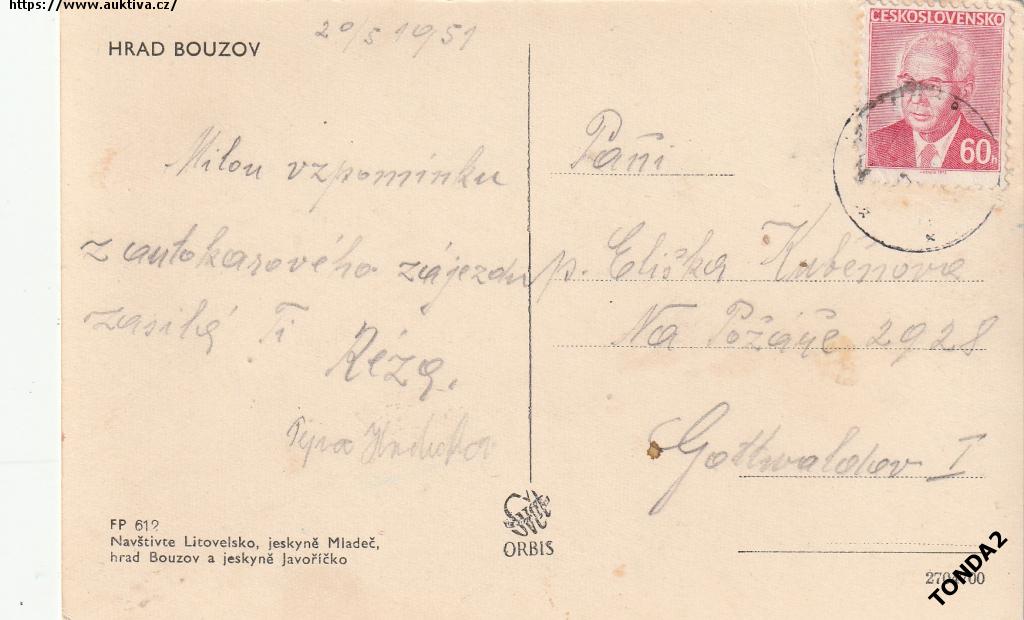 https://www.auktiva.cz/
HRAD BOUZOV
20/5 1951
Milou vzpomínku
z autokarového zájezdu
zasílá Ti
Réza.
FP 612
Navštivte Litovelsko, jeskyně Mladeč,
hrad Bouzov a jeskyně Javoříčko
Svět
ORBIS
ČESKOSLOVENSKO
60h
Paní
p. Eliška Kuběnova
Na Požáře 2928
Gottwaldov I
TONDA2